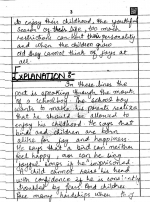 3
to enjoy their childhood, the youthful
season of their life, too much
restrictions can blunt their personality
and when the children grow
old they cannot think of joys at
all.
EXPLANATION 8-
In these lines the
poet is speaking through the mouth
of a schoolboy. The school boy
wants to make his parents realize
that he should be allowed to
enjoy his childhood. He says that
birds and children are born
alike for joy and happiness.
He says that a bird can neither
feel happy, nor can he sing
sweet songs if he is imprisoned
A child cannot raise his head
with confidence as he is constantly
troubled by fear and children
face many hardships when